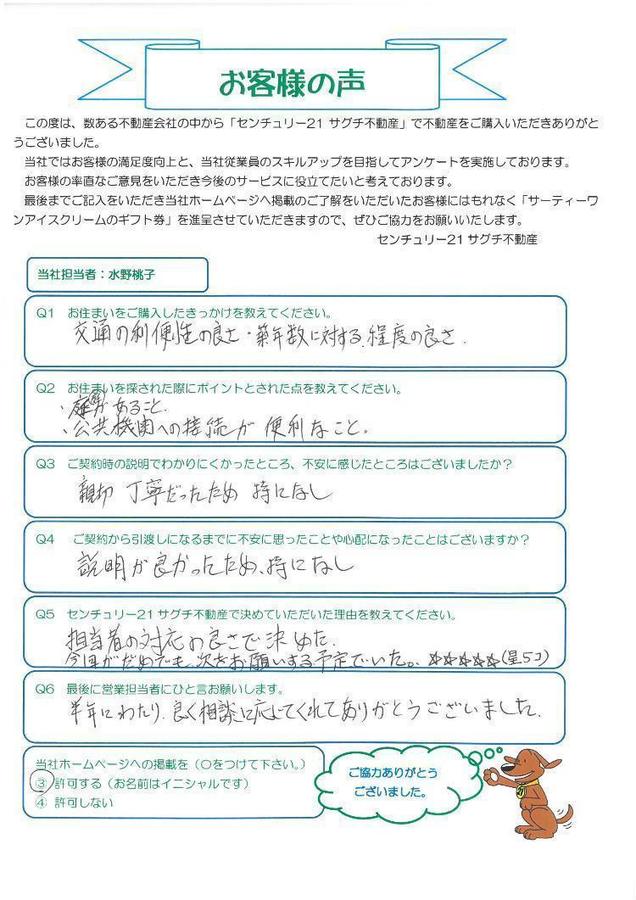 お客様の声
この度は、数ある不動産会社の中から「センチュリー21 サグチ不動産」で不動産をご購入いただきありがと
うございました。
当社ではお客様の満足度向上と、当社従業員のスキルアップを目指してアンケートを実施しております。
お客様の率直なご意見をいただき今後のサービスに役立てたいと考えております。
最後までご記入をいただき当社ホームページへ掲載のご了解をいただいたお客様にはもれなく「サーティーワ
ンアイスクリームのギフト券」を進呈させていただきますので、ぜひご協力をお願いいたします。
センチュリー21 サグチ不動産
当社担当者：水野桃子
Q1 お住まいをご購入したきっかけを教えてください。
交通の利便性の良さ・築年数に対する程度の良さ.
Q2 お住まいを探された際にポイントとされた点を教えてください。
、庭があること.
、公共機関への接続が便利なこと。
Q3 ご契約時の説明でわかりにくかったところ、不安に感じたところはございましたか？
親切 丁寧だったため 特になし
Q4 ご契約から引渡しになるまでに不安に思ったことや心配になったことはございますか？
説明が良かったため、特になし
Q5 センチュリー21 サグチ不動産で決めていただいた理由を教えてください。
担当者の対応の良さで決めた.
今回がだめでも、次もお願いする予定でいた。☆☆☆☆☆(星5コ)
Q6 最後に営業担当者にひと言お願いします。
半年にわたり、良く相談に応じてくれてありがとうございました.
当社ホームページへの掲載を（○をつけて下さい。）
③ 許可する（お名前はイニシャルです）
④ 許可しない
ご協力ありがとう
ございました。